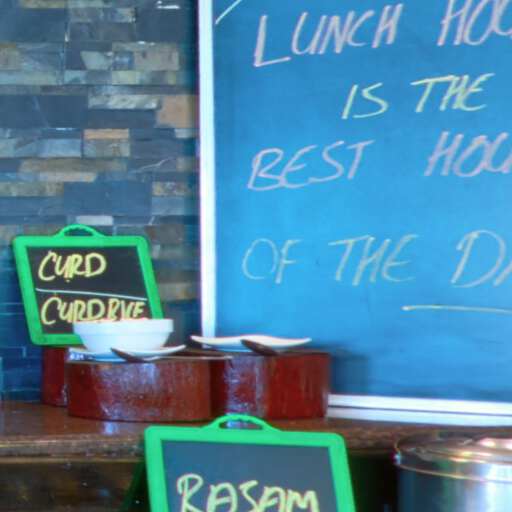 LUNCH HOU
IS THE
BEST HOU
OF THE DA
CURD
CURDRICE
RASAM